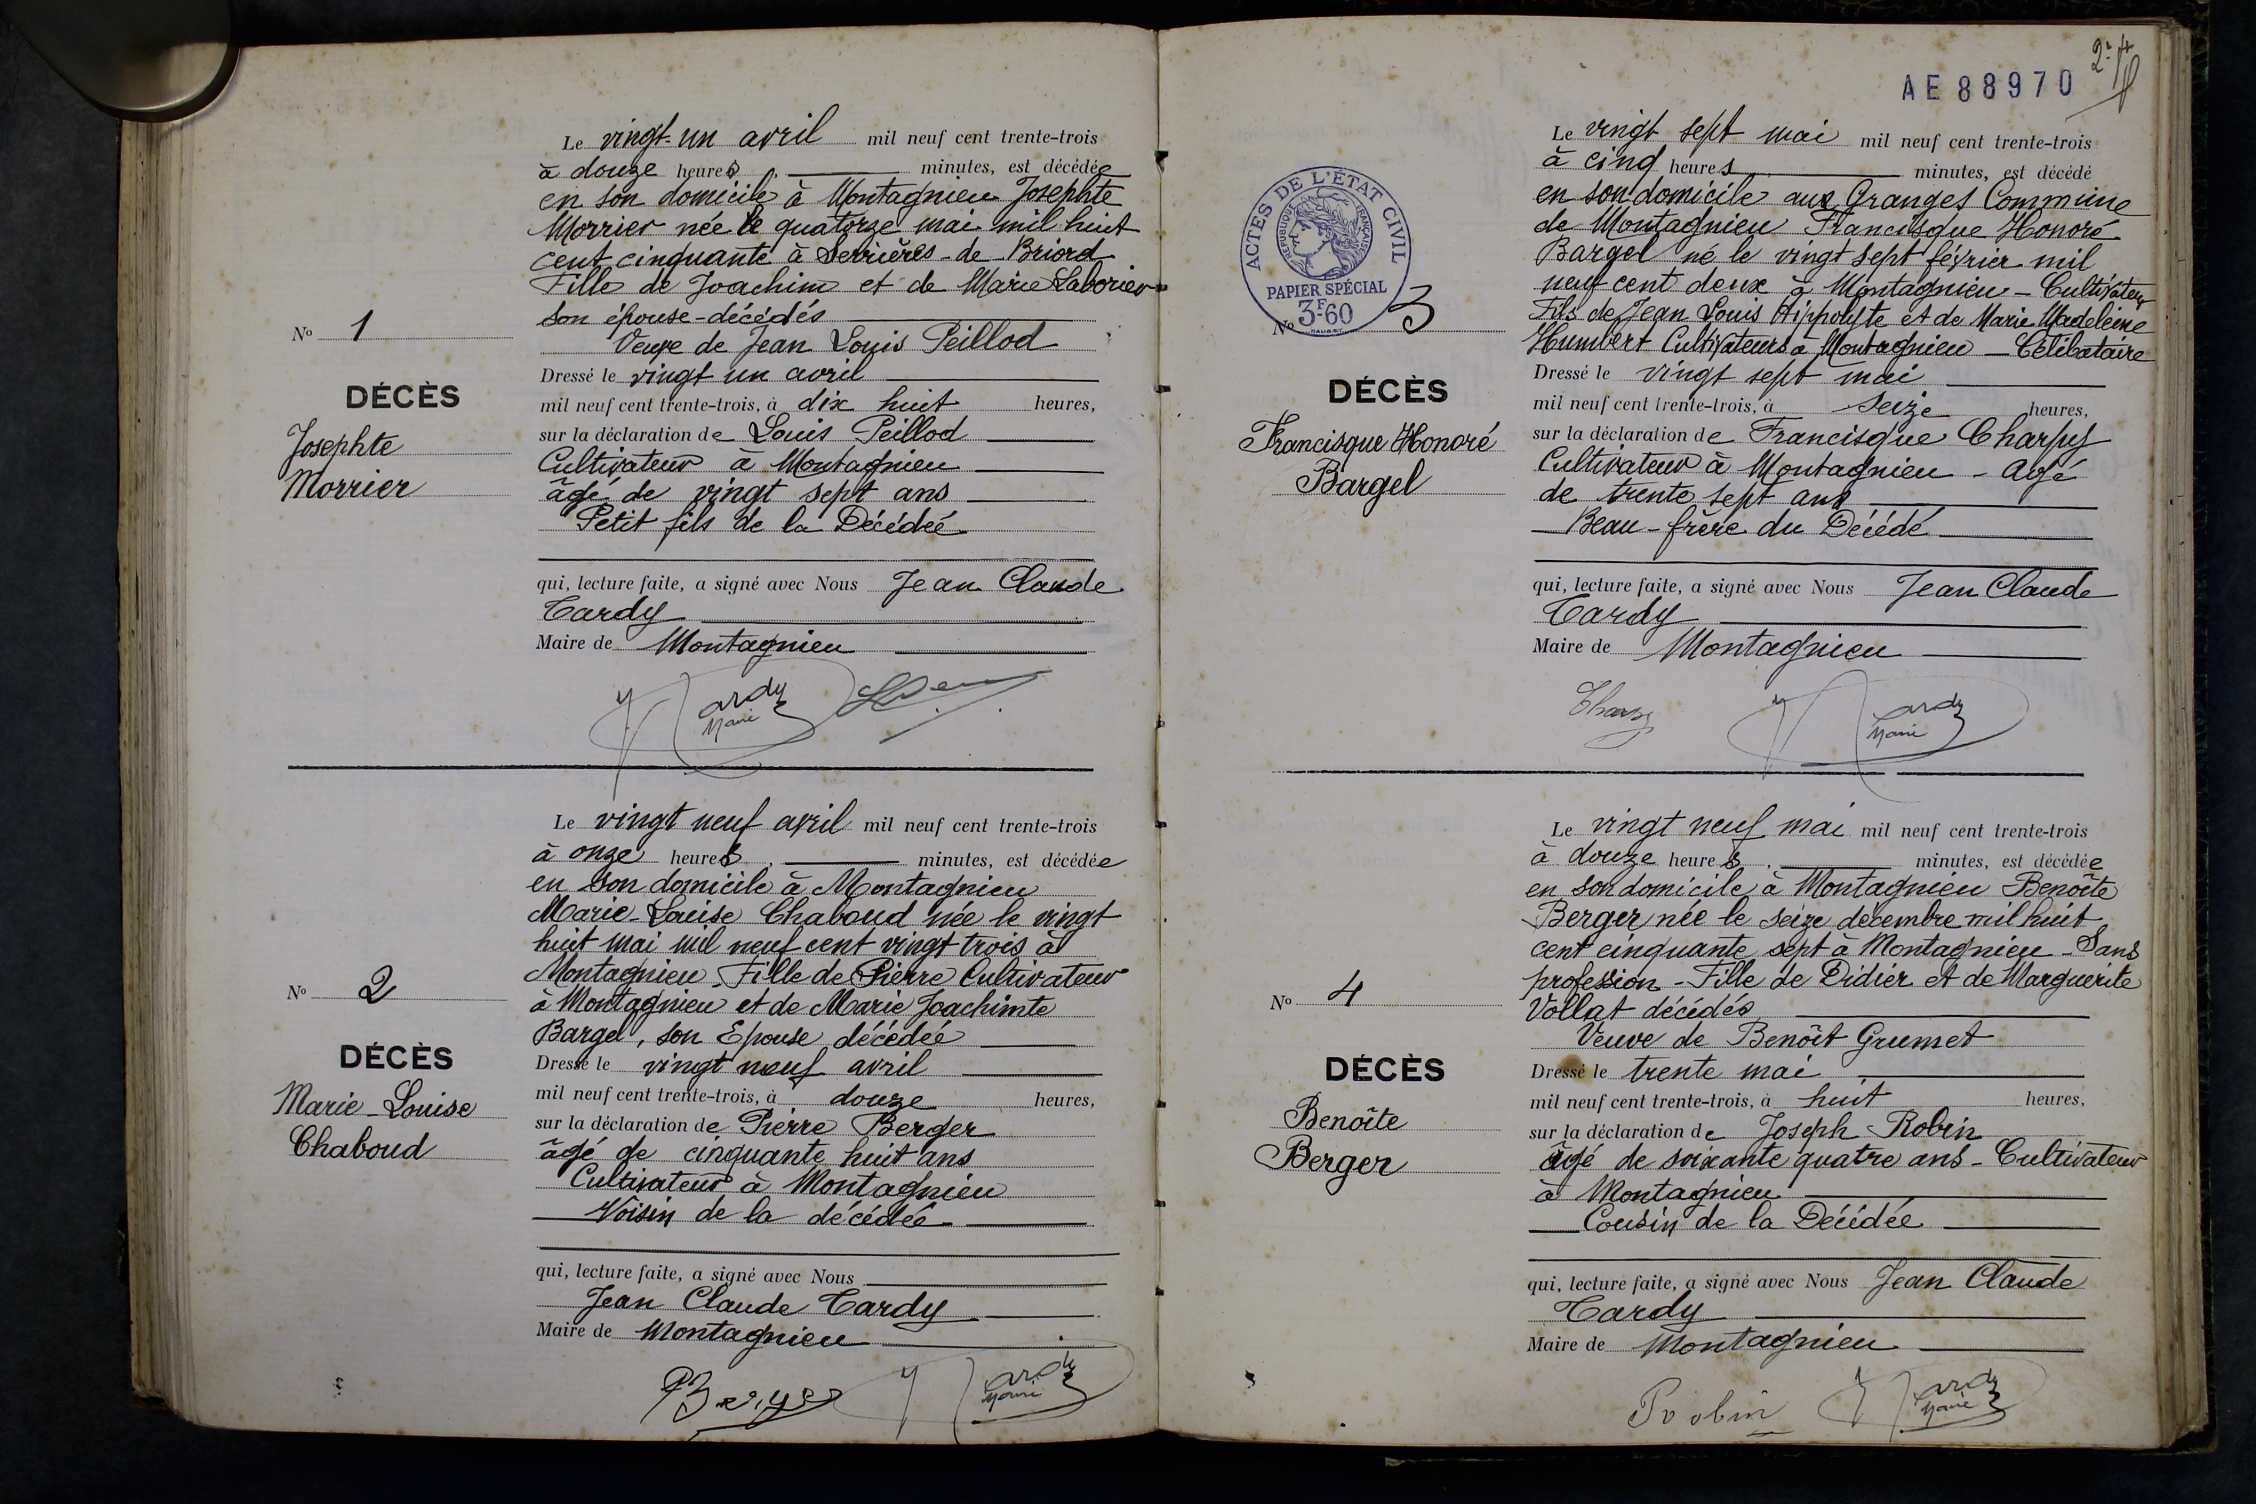 Le vingt-un avril mil neuf cent trente-trois
à douze heures minutes, est décédée
en son domicile à Montagnieu Josephte
Morrier née le quatorze mai mil huit
cent cinquante à Serrières-de-Briord
Fille de Joachim et de Marie Laborier
son épouse-décédés
Veuve de Jean Louis Peillod
Nº 1
DÉCÈS
Josephte
Morrier
Dressé le vingt un avril
mil neuf cent trente-trois, à dix huit heures,
sur la déclaration de Louis Peillod
Cultivateur à Montagnieu
âgé de vingt sept ans
Petit fils de la Décédée
qui, lecture faite, a signé avec Nous Jean Claude
Tardy
Maire de Montagnieu
Tardy
Maire
Le vingt neuf avril mil neuf cent trente-trois
à onze heures minutes, est décédée
en son domicile à Montagnieu
Marie-Louise Chaboud née le vingt
huit mai mil neuf cent vingt trois à
Montagnieu Fille de Pierre Cultivateur
à Montagnieu et de Marie Joachimte
Bargel, son Epouse décédée
Nº 2
DÉCÈS
Marie-Louise
Chaboud
Dressé le vingt neuf avril
mil neuf cent trente-trois, à douze heures,
sur la déclaration de Pierre Berger
âgé de cinquante huit ans
Cultivateur à Montagnieu
Voisin de la décédée
qui, lecture faite, a signé avec Nous
Jean Claude Tardy
Maire de Montagnieu
PBerger
Tardy
Maire
2
AE 88970
Le vingt sept mai mil neuf cent trente-trois
à cinq heures minutes, est décédé
en son domicile aux Granges Commune
de Montagnieu Francisque Honoré
Bargel né le vingt sept février mil
neuf cent deux à Montagnieu - Cultivateur
Fils de Jean Louis Hippolyte et de Marie Madeleine
Humbert Cultivateurs à Montagnieu - Célibataire
ACTES DE L'ÉTAT CIVIL
RÉPUBLIQUE FRANÇAISE
PAPIER SPÉCIAL
3F60
Nº 3
DÉCÈS
Francisque Honoré
Bargel
Dressé le vingt sept mai
mil neuf cent trente-trois, à seize heures,
sur la déclaration de Francisque Charpy
Cultivateur à Montagnieu - Agé
de trente sept ans
Beau-frère du Décédé
qui, lecture faite, a signé avec Nous Jean Claude
Tardy
Maire de Montagnieu
Charpy
Tardy
Maire
Le vingt neuf mai mil neuf cent trente-trois
à douze heures minutes, est décédée
en son domicile à Montagnieu Benoîte
Berger née le seize décembre mil huit
cent cinquante sept à Montagnieu - Sans
profession - Fille de Didier et de Marguerite
Vollat décédés
Veuve de Benoît Grumet
Nº 4
DÉCÈS
Benoîte
Berger
Dressé le trente mai
mil neuf cent trente-trois, à huit heures,
sur la déclaration de Joseph Robin
âgé de soixante quatre ans - Cultivateur
à Montagnieu
Cousin de la Décédée
qui, lecture faite, a signé avec Nous Jean Claude
Tardy
Maire de Montagnieu
Robin
Tardy
Maire